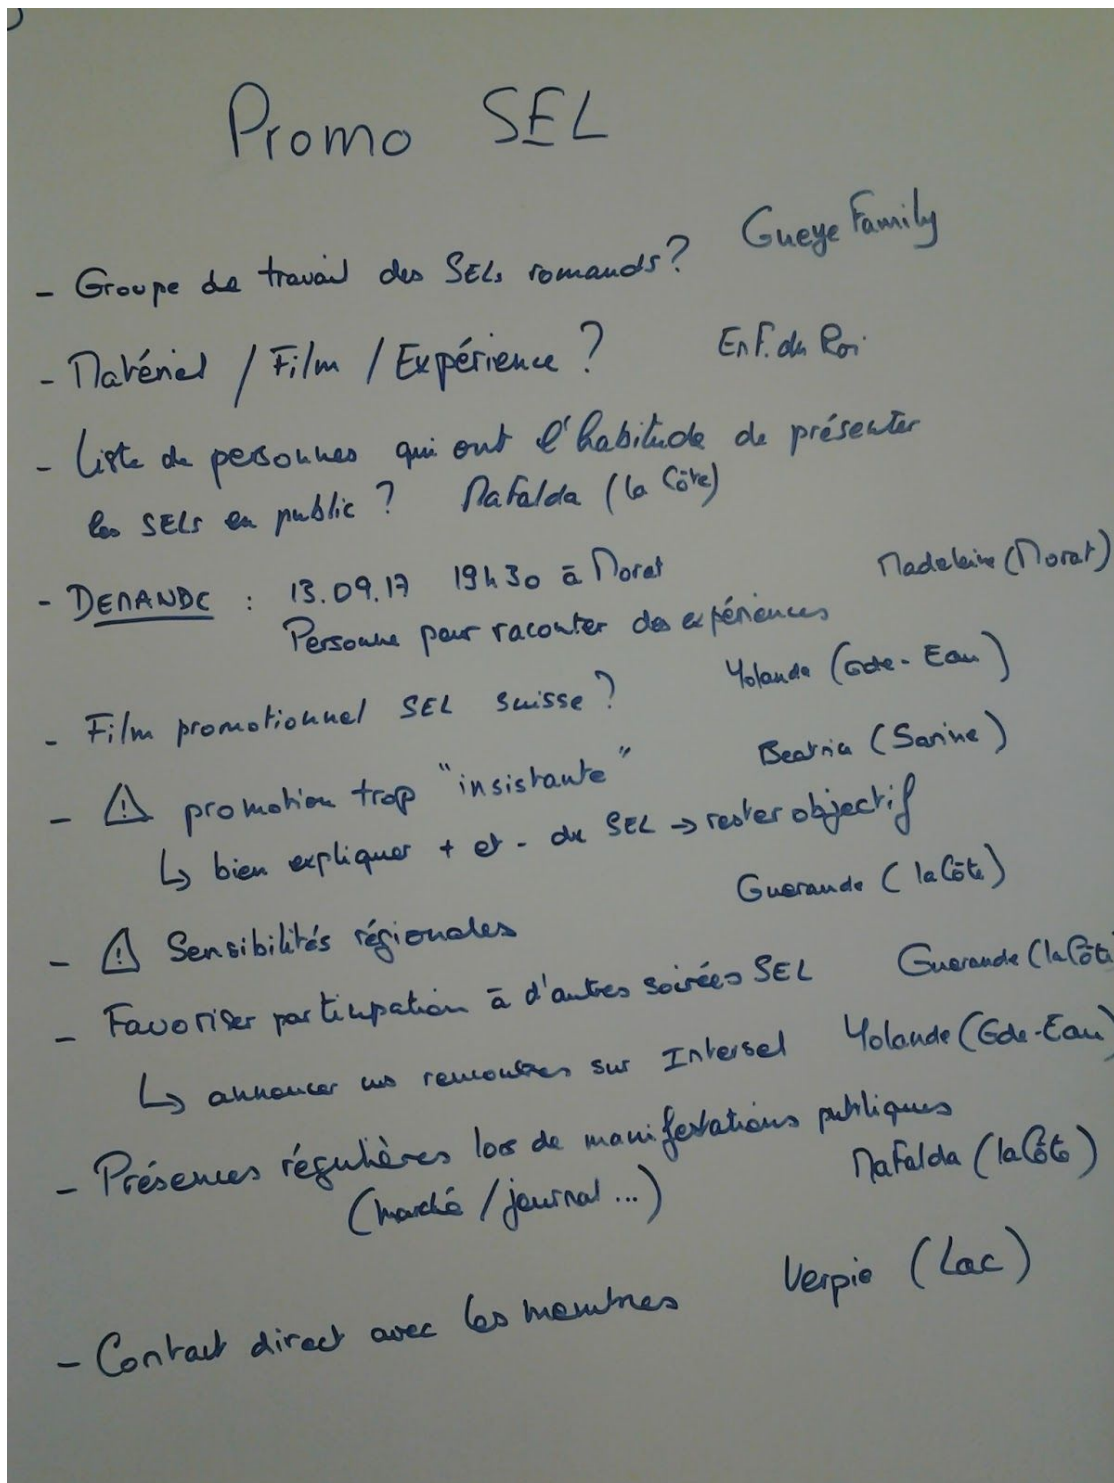 Promo SEL
Gueye Family
- Groupe de travail des SELs romands?
- Matériel / Film / Expérience ? Enf. du Roi
- Liste de personnes qui ont l'habitude de présenter
les SELs en public ? Mafalda (la Côte)
- DEMANDE : 13.09.17 19h30 à Morat Madeleine (Morat)
Personne pour raconter des expériences
- Film promotionnel SEL suisse ? Yolande (Gde-Eau)
- ⚠ promotion trop "insistante" Beatrice (Sarine)
↳ bien expliquer + et - du SEL → rester objectif
- ⚠ Sensibilités régionales Guerande (la Côte)
- Favoriser participation à d'autres soirées SEL Guerande (la Côte)
↳ annoncer nos rencontres sur Intersel Yolande (Gde-Eau)
- Présences régulières lors de manifestations publiques
(marché / journal ...) Mafalda (la Côte)
- Contact direct avec les membres Verpie (Lac)